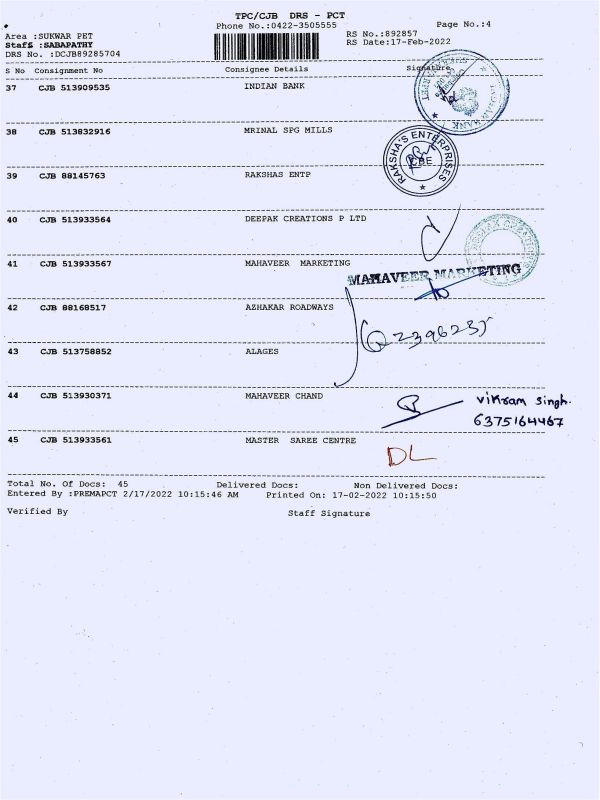 TPC/CJB DRS - PCT
Phone No.:0422-3505555
Page No.:4
Area :SUKWAR PET
RS No.:892857
Staff :SABAPATHY
RS Date:17-Feb-2022
DRS No. :DCJB89285704
S No Consignment No Consignee Details Signature
37 CJB 513909535 INDIAN BANK
38 CJB 513832916 MRINAL SPG MILLS
RAKSHA'S ENTERPRISES
CBE
39 CJB 88145763 RAKSHAS ENTP
40 CJB 513933564 DEEPAK CREATIONS P LTD
41 CJB 513933567 MAHAVEER MARKETING
MAHAVEER MARKETING
42 CJB 88168517 AZHAKAR ROADWAYS
43 CJB 513758852 ALAGES
44 CJB 513930371 MAHAVEER CHAND
vikram singh.
6375164467
45 CJB 513933561 MASTER SAREE CENTRE
DL
Total No. Of Docs: 45 Delivered Docs: Non Delivered Docs:
Entered By :PREMAPCT 2/17/2022 10:15:46 AM Printed On: 17-02-2022 10:15:50
Verified By Staff Signature